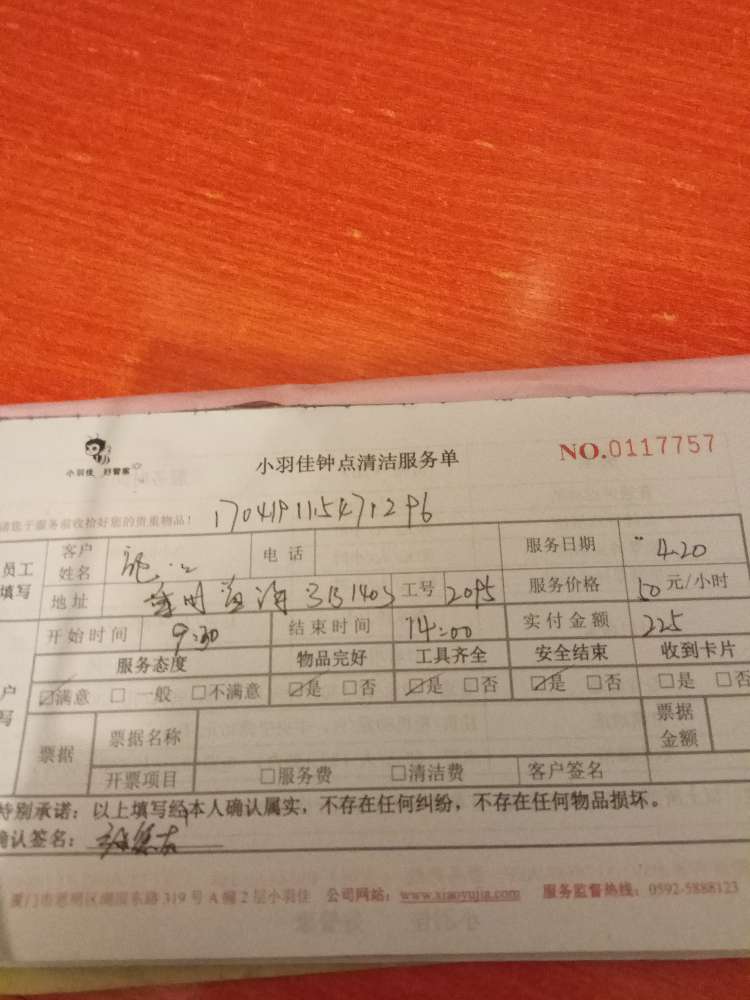 小羽佳 好管家
小羽佳钟点清洁服务单
NO.0117757
请您于服务前收拾好您的贵重物品!
170419115471296
员工填写
客户姓名
电话
服务日期 4.20
地址 3B1403
工号 2095
服务价格 50 元/小时
开始时间 9:30
结束时间 14:00
实付金额 225
服务态度 物品完好 工具齐全 安全结束 收到卡片
☑满意 □ 一般 □不满意 ☑是 □否 ☑是 □否 ☑是 □否 □是 □否
户写
票据 票据名称 票据金额
开票项目 □服务费 □清洁费 客户签名
特别承诺:以上填写经本人确认属实,不存在任何纠纷,不存在任何物品损坏。
确认签名:
厦门市思明区湖滨东路 319 号 A 幢 2 层小羽佳 公司网站:www.xiaoyujia.com 服务监督热线:0592-5888123